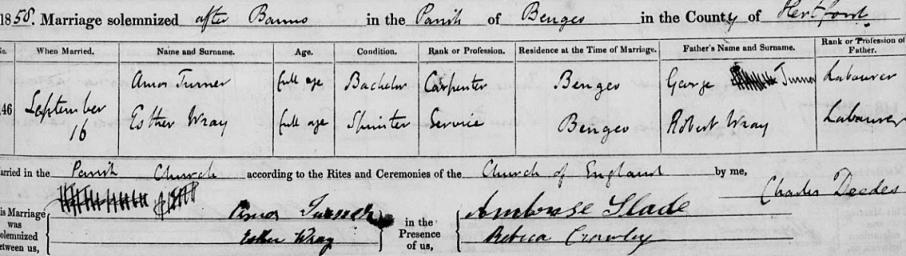 1858. Marriage solemnized after Banns in the Parish of Bengeo in the County of Hertford
No. When Married. Name and Surname. Age. Condition. Rank or Profession. Residence at the Time of Marriage. Father's Name and Surname. Rank or Profession of Father.
Amos Turner full age Bachelor Carpenter Bengeo George Turner Labourer
46 September 16 Esther Wray full age Spinster Service Bengeo Robert Wray Labourer
Married in the Parish Church according to the Rites and Ceremonies of the Church of England by me,
Charles Deedes
This Marriage was solemnized between us, Amos Turner in the Presence of us, Ambrose Slade
Esther Wray Rebeca Crowley